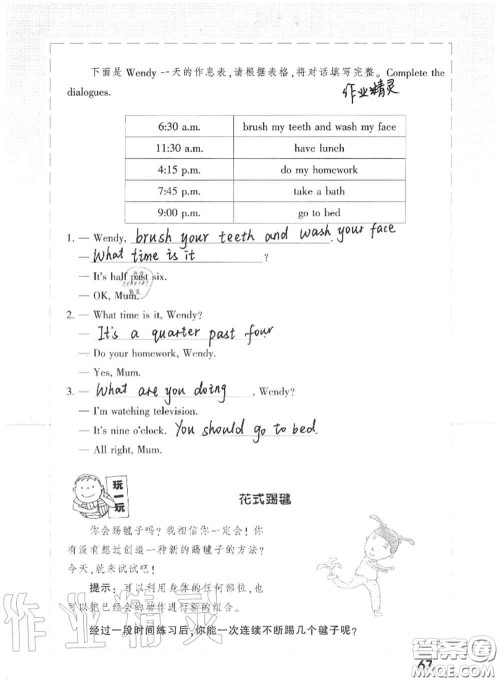 下面是 Wendy 一天的作息表,请根据表格,将对话填写完整。Complete the
dialogues.
作业精灵
6:30 a.m. brush my teeth and wash my face
11:30 a.m. have lunch
4:15 p.m. do my homework
7:45 p.m. take a bath
9:00 p.m. go to bed
1. — Wendy, brush your teeth and wash your face
— What time is it ?
— It's half past six.
— OK, Mum.
2. — What time is it, Wendy?
— It's a quarter past four
— Do your homework, Wendy.
— Yes, Mum.
3. — What are you doing , Wendy?
— I'm watching television.
— It's nine o'clock. You should go to bed.
— All right, Mum.
玩一玩
花式踢毽
你会踢毽子吗?我相信你一定会!你
有没有想过创造一种新的踢毽子的方法?
今天,就来试试吧!
提示:可以利用身体的任何部位,也
可以把已经会的动作进行新的组合。
经过一段时间练习后,你能一次连续不断踢几个毽子呢?
作业精灵
答案圈
MXQE.COM
67